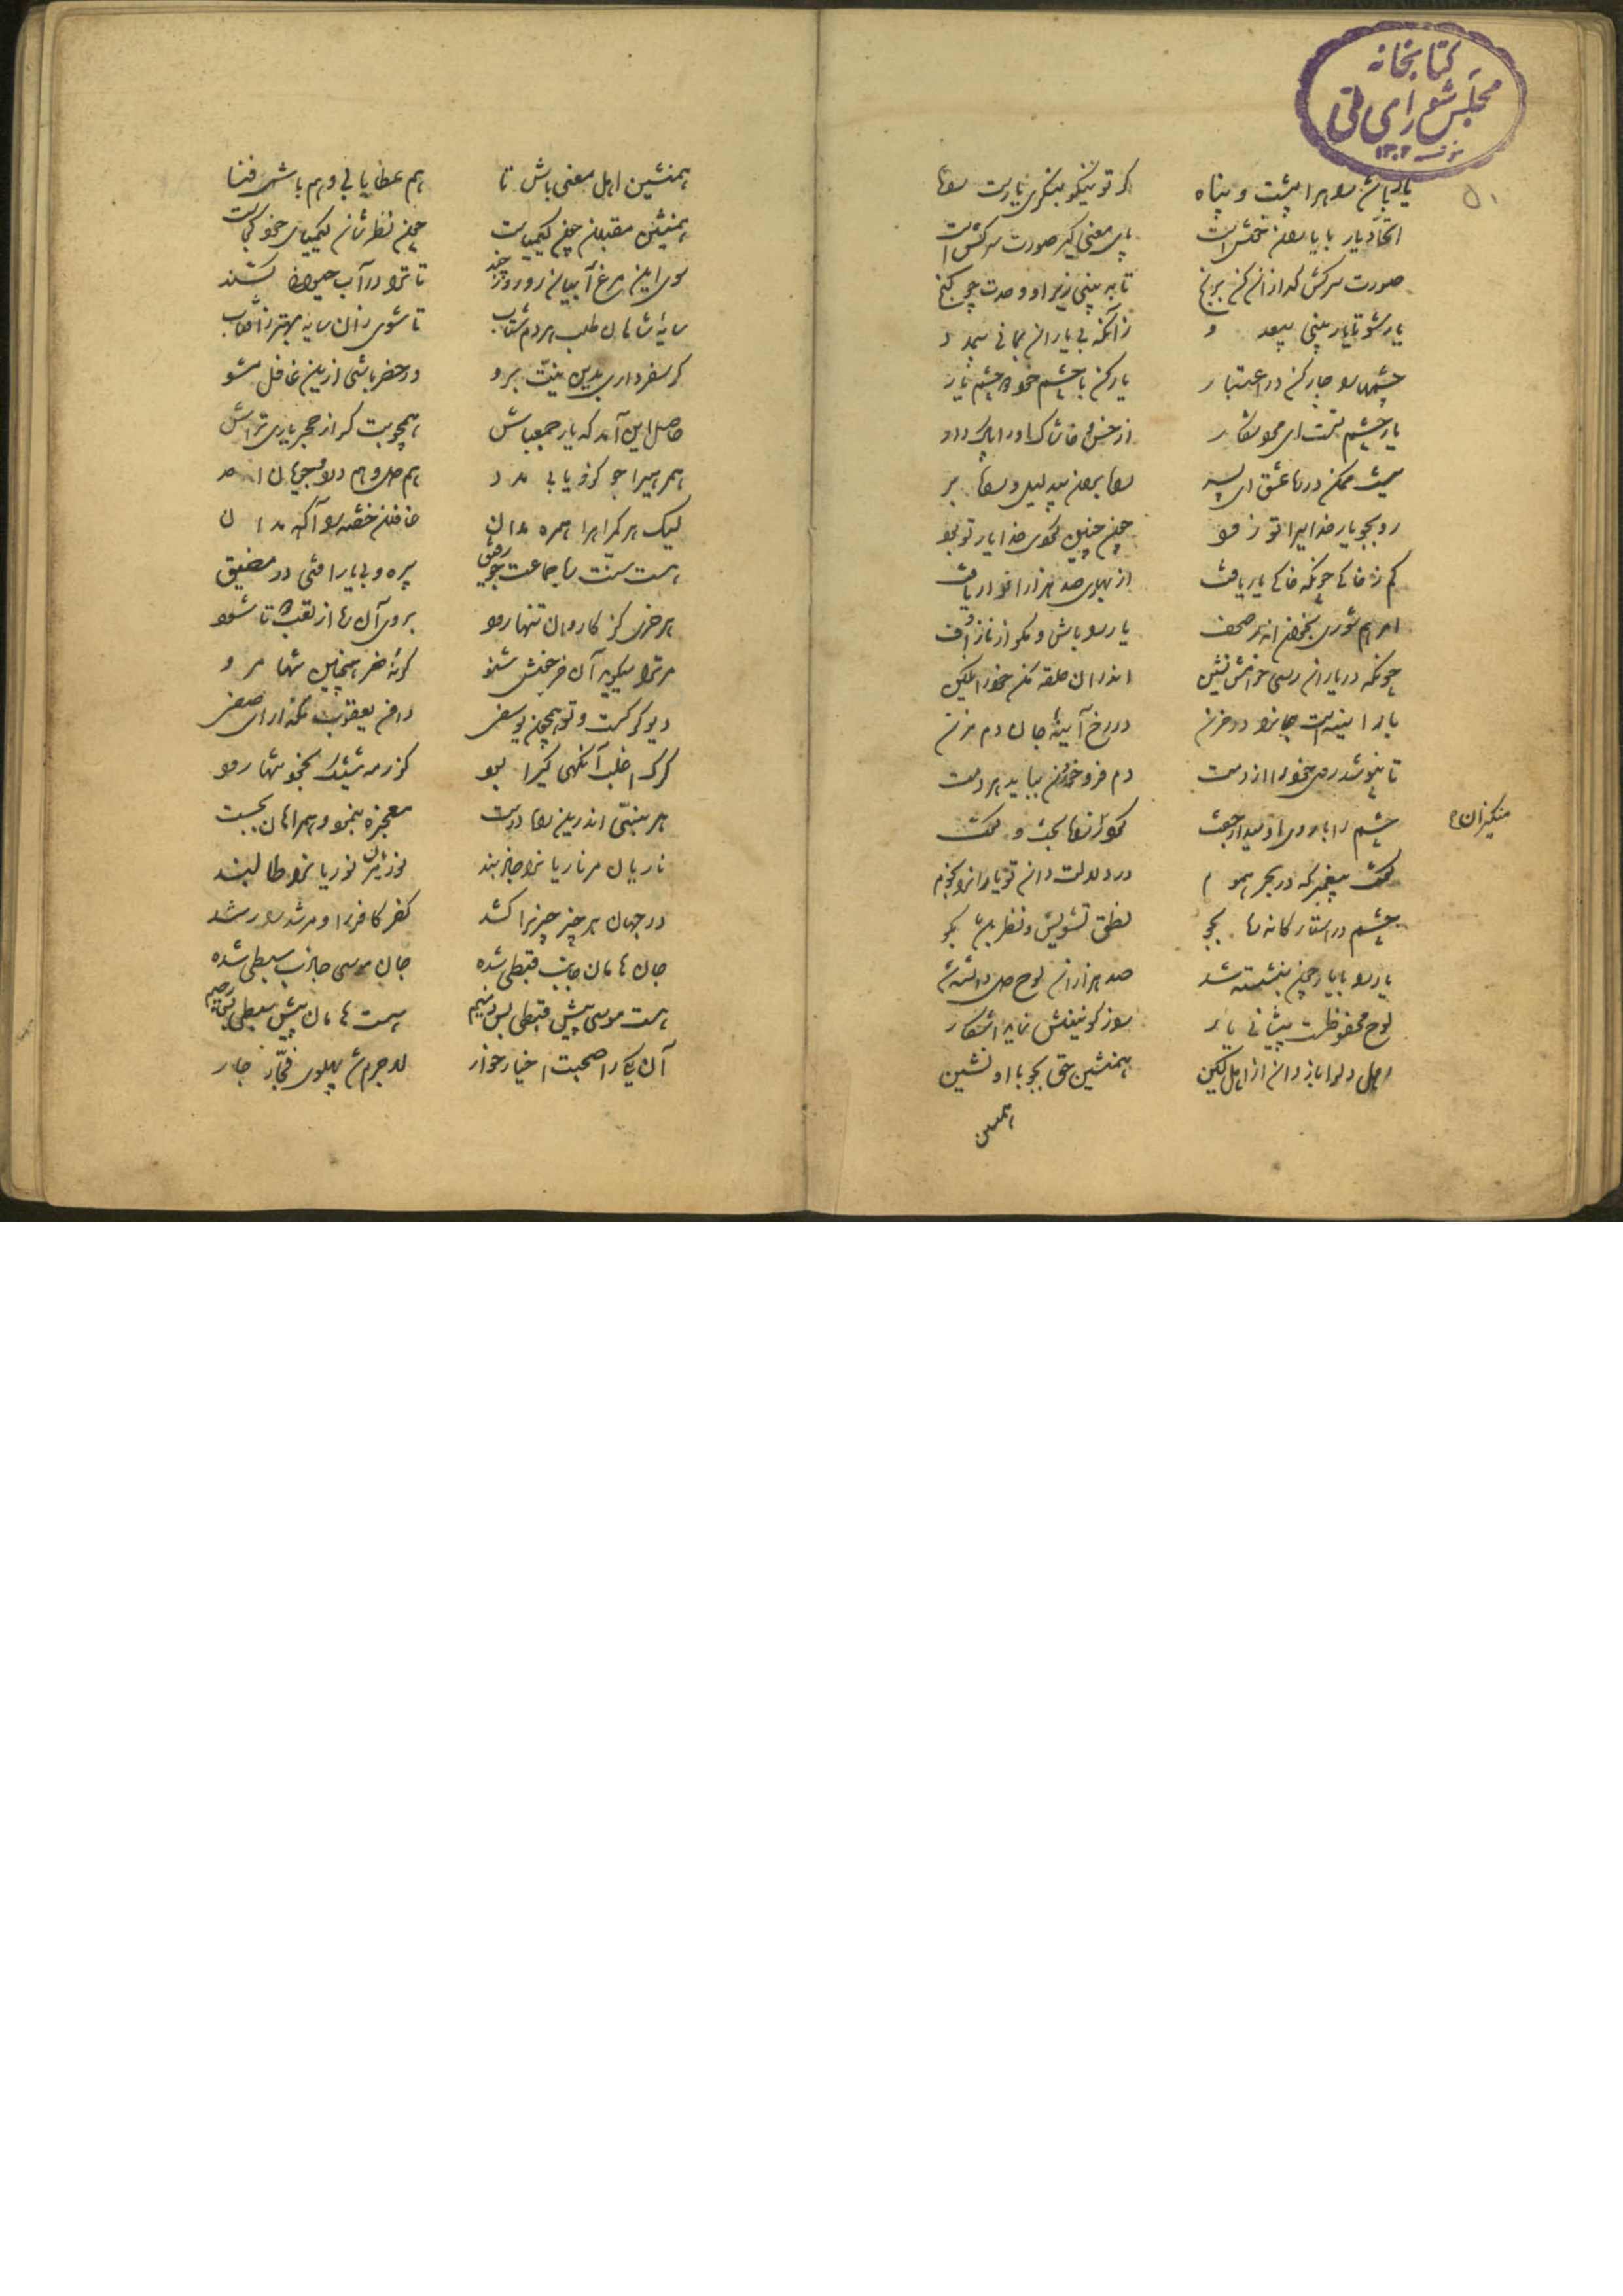 کتابخانه
مجلس شورای ملی
۱۳۰۲
۵۱
یار باش راه را پشت و پناه    کر تو نیکو بنکری یارست راه
اتحاد یار با یاران خوش است    پای معنی کیر صورت سرکش است
صورت سرکش کدازان کن برنج    تا به بینی زیر او وحدت چو کنج
یار شو تا یار بینی بیعدد    زانکه بی یاران بمانی بیمدد
چشم را چار کن در اعتبار    یار کن با چشم خود چشم یار
یار چشم تست ای مرد شکار    از خس و خاشاک او را پاک دار
ممکن در راه عشق ای پسر    راه بردن بیدلیل و راهبر
رو بجو یار خدایی را تو زود    چون چنین کردی خدا یار تو بود
کم ز خاکی چونکه خاکی یار یافت    از بهاری صد هزار انوار یافت
امرهم شوری بخوان اندر صحف    یار را باش و مکو از ناز اف
چونکه در یاران رسی خامش نشین    اندران حلقه مکن خود را نکین
یار آینه است جانرا در حزن    در رخ آینه جان دم مزن
تا نپوشد روی خود را از دمت    دم فرو خوردن بباید هر دمت
چشم را با روی او میدار جفت    کرد راه بحث و کفت
منکیزان
کفت پیغمبر که در بحر هموم    در دلالت دان تو یارانرا نجوم
چشم در استارکان نه ره بجو    نطق تشویش نظر باشد مکو
یار را با یار چون بنشسته شد    صد هزاران لوح دل دانسته شد
لوح محفوظست پیشانی یار    راز کونینش نماید آشکار
اهل دل را باز دان از اهل کین    همنشین حق بجو با او نشین
همنشین
همنشین اهل معنی باش تا    هم عطا یابی و هم باشی فتا
همنشین مقبلان چون کیمیاست    چون نظرشان کیمیای خود کجاست
سوی این مرغ آبیان رو روز چند    تا ترا در آب حیوان کشند
سایه شاهان طلب هر دم شتاب    تا شوی زان سایه بهتر ز آفتاب
کر سفر داری بدین نیت برو    ور حضر باشی ازین غافل مشو
حاصل این آمد که یار جمع باش    همچو بتکر از حجر یاری تراش
همرهی را جو کزو یابی مدد
لیک هر کمراه را همره مدان    غافلان خفته را آکه مدان
هست سنت ره جماعت چون رفیق    بیره و بی یار افتی در مضیق
هر خری کز کاروان تنها رود    بروی آن راه از تعب تا شود
مر ترا میکوید آن خر خوش شنو    کرنه خر همچنین تنها مرو
دیو کرکست و تو همچون یوسفی    دامن یعقوب مکذار ای صفی
کرک اغلب آنکهی کیرا بود    کز رمه شیشک بخود تنها رود
هر نبیی اندرین راه درست    معجزه بنمود و همراهان بجست
ناریان مر ناریانرا جاذبند    نوریان نوریانرا طالبند
در جهان هر چیز چیزی را کشد    کفر کافر را و مرشد را رشد
جان هامان جاذب قبطی شده    جان موسی جاذب سبطی شده
هست موسی پیش قبطی بس ذمیم    هست هامان پیش سبطی بس رجیم
آن یکی را صحبت اخیار خوار    لاجرم شد پهلوی فجار جار